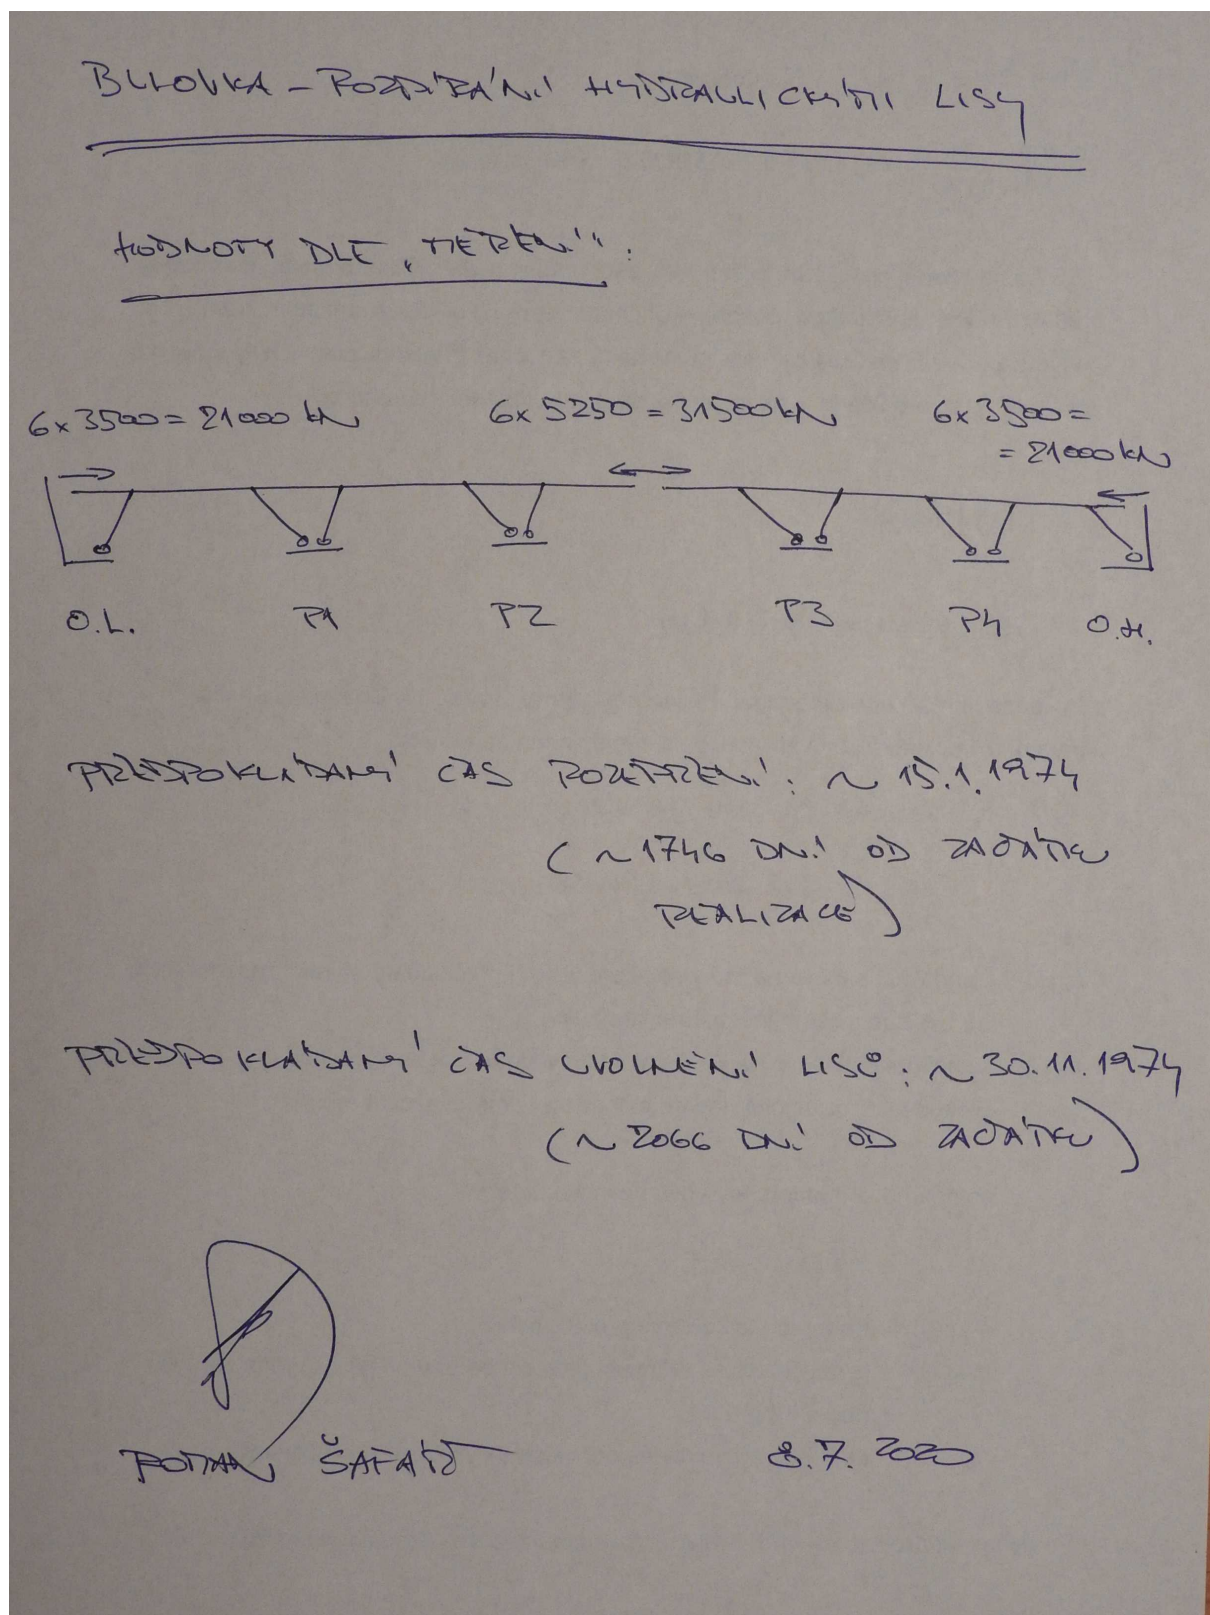 BULOVKA – ROZPÍRÁNÍ HYDRAULICKÝMI LISY
HODNOTY DLE „MĚŘENÍ“:
6x3500= 21000 kN 6x5250 = 31500 kN 6x3500=
= 21000 kN
O.L. P1 P2 P3 P4 O.H.
PŘEDPOKLÁDANÝ ČAS ROZEPŘENÍ: ~ 15.1.1974
(~1746 DNÍ OD ZAČÁTKU
REALIZACE)
PŘEDPOKLÁDANÝ ČAS UVOLNĚNÍ LISŮ: ~ 30.11.1974
(~2066 DNÍ OD ZAČÁTKU)
ROMAN ŠAFÁŘ 8.7.2020